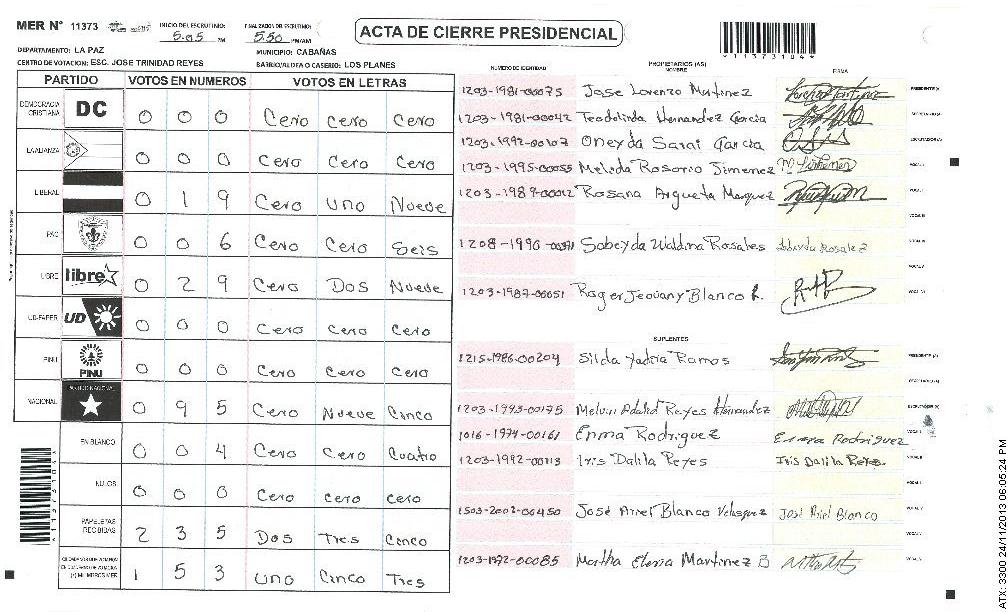 MER N° 11373
INICIO DEL ESCRUTINIO: 5.05 PM
FINALIZACION DEL ESCRUTINIO: 5.50 PM/AM
ACTA DE CIERRE PRESIDENCIAL
*11373104*
DEPARTAMENTO: LA PAZ
MUNICIPIO: CABAÑAS
CENTRO DE VOTACION: ESC. JOSE TRINIDAD REYES
BARRIO/ALDEA O CASERIO: LOS PLANES
PARTIDO VOTOS EN NUMEROS VOTOS EN LETRAS
DEMOCRACIA CRISTIANA DC 0 0 0 Cero Cero Cero
LA ALIANZA 0 0 0 Cero Cero Cero
LIBERAL 0 1 9 Cero Uno Nueve
PAC 0 0 6 Cero Cero Seis
LIBRE libre 0 2 9 Cero Dos Nueve
UD-FAPER UD 0 0 0 Cero Cero Cero
PINU PINU 0 0 0 Cero Cero Cero
NACIONAL PARTIDO NACIONAL 0 9 5 Cero Nueve Cinco
EN BLANCO 0 0 4 Cero Cero Cuatro
NULOS 0 0 0 Cero Cero Cero
PAPELETAS RECIBIDAS 2 3 5 Dos Tres Cinco
1 5 3 Uno Cinco Tres
NUMERO DE IDENTIDAD PROPIETARIOS (AS) NOMBRE FIRMA
1203-1981-00075 Jose Lorenzo Martinez PRESIDENTE (A)
1203-1981-00042 Teodolinda Hernandez Garcia SECRETARIO (A)
1203-1992-00107 Oneyda Sarai Garcia ESCRUTADOR (A)
1203-1995-00055 Melida Rosario Jimenez VOCAL I
1203-1989-00012 Rosana Argueta Marquez VOCAL II
VOCAL III
1208-1990- Sobeyda Waldina Rosales Sobeyda Rosales VOCAL IV
VOCAL V
1203-1987-00051 Roger Jeovany Blanco R. VOCAL VI
SUPLENTES
1215-1986-00204 Silda Yadira Ramos PRESIDENTE (A)
SECRETARIO (A)
1203-1993-00175 Melvin Adalid Reyes Hernandez ESCRUTADOR (A)
1016-1974-00161 Enma Rodriguez Enma Rodriguez VOCAL I
1203-1992-00113 Iris Dalila Reyes Iris Dalila Reyes VOCAL II
1503-2002-00450 José Ariel Blanco Velasquez José Ariel Blanco
1203-1972-00085 Martha Elena Martinez B
*11373104*
ATX: 3300 24/11/2013 06:05:24 PM